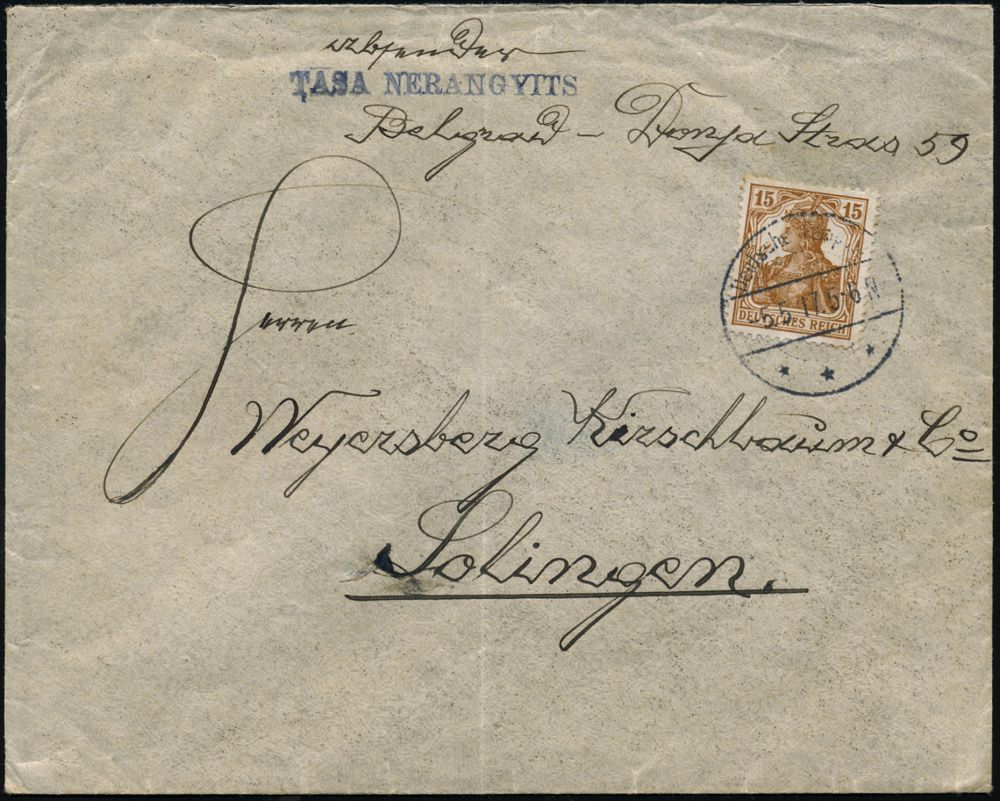 Absender
TASA NERANGYITS
Belgrad - Donja Stras 59
15 15
DEUTSCHES REICH
5.5.17.5-6N
Herren
Weyersberg Kirschbaum & Co
Solingen.